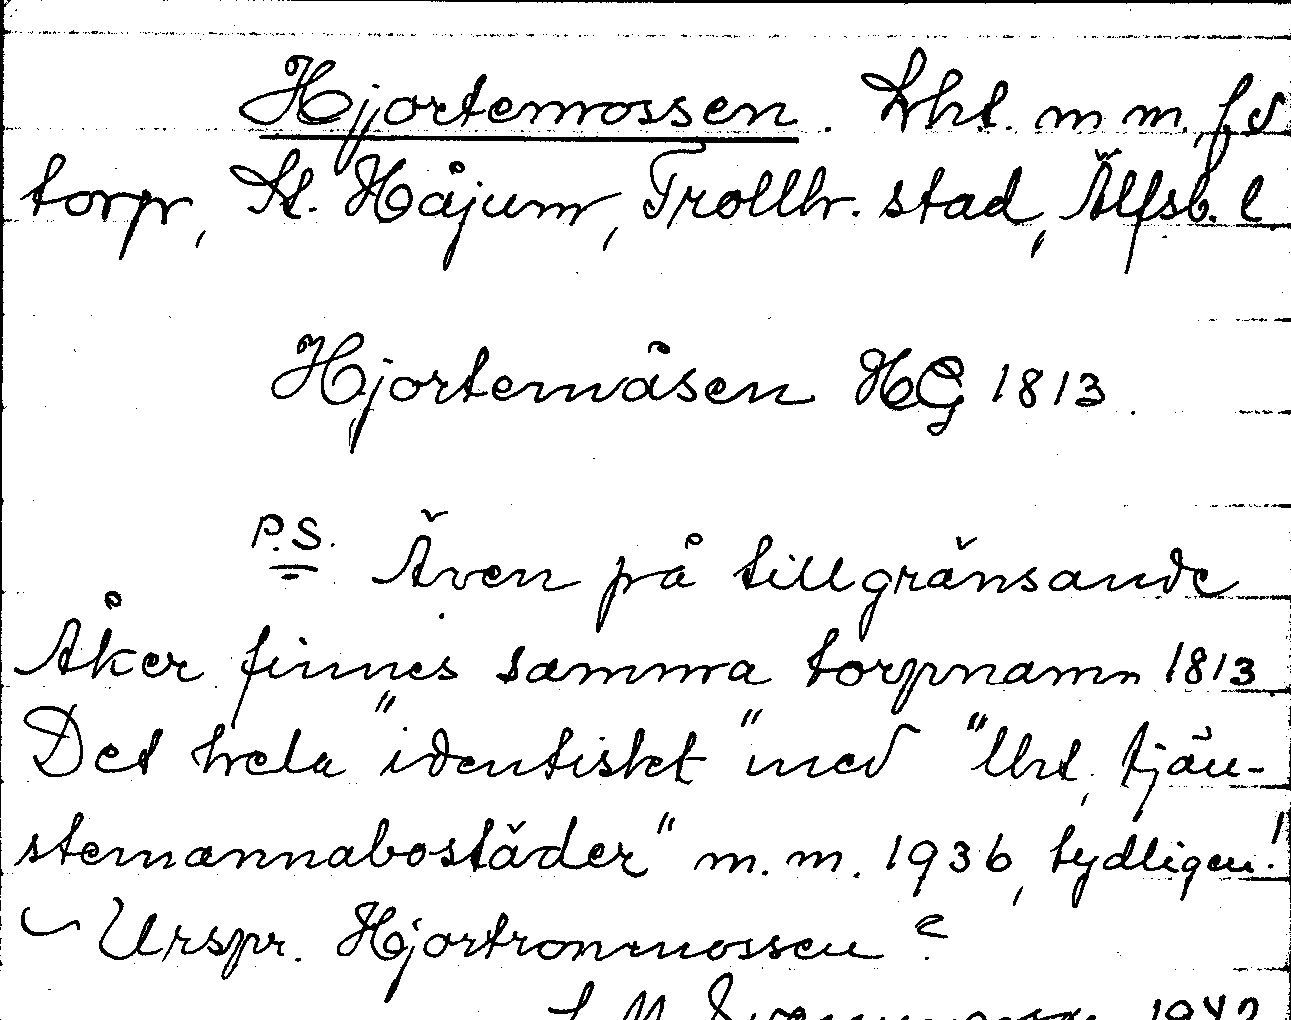 Hjortemossen. Lht. m m, f d
torp, St. Håjum, Trollh. stad, Älfsb. l.
Hjortemåsen HG 1813.
P.S. Även på tillgränsande
Åker finnes samma torpnamn 1813
Det hela "identiskt" med "lht, tjän-
stemannabostäder" m. m. 1936, tydligen!
Urspr. Hjortronmossen?
1942